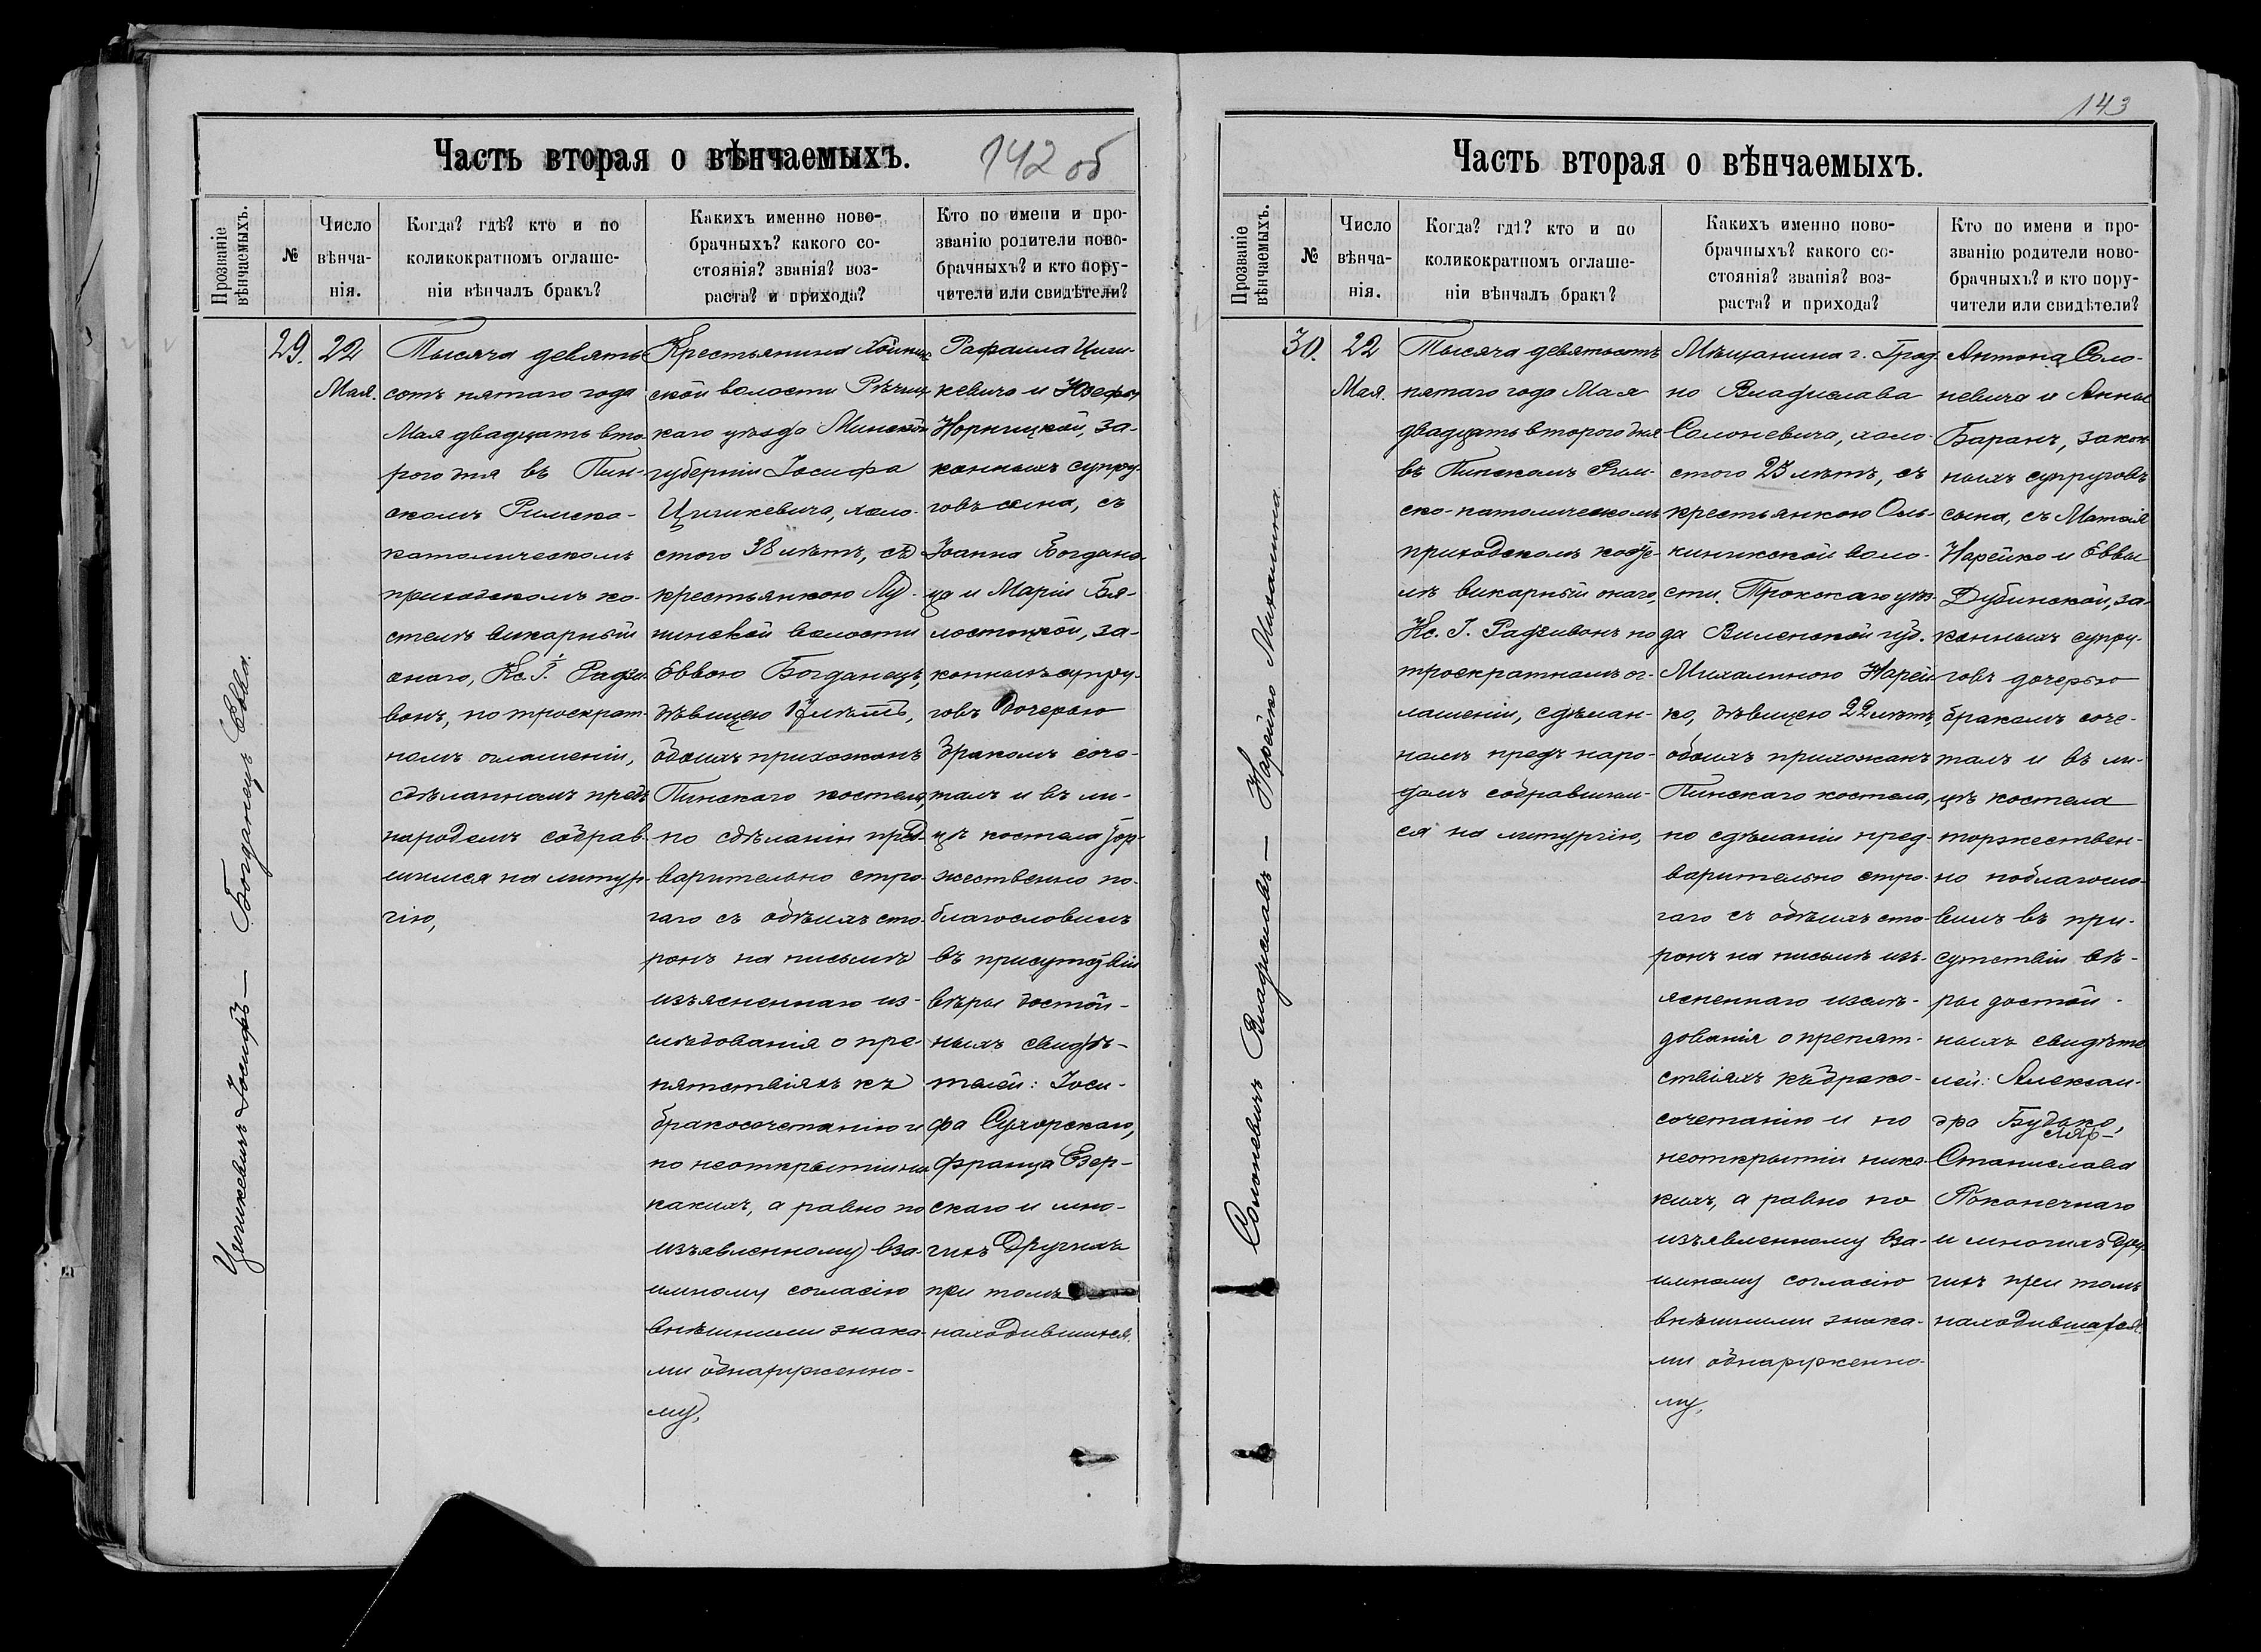 Часть вторая о вѣнчаемыхъ.
142 об
Прозваніе
вѣнчаемыхъ.
№
Число
вѣнча-
нія.
Когда? гдѣ? кто и по
коликократномъ оглаше-
ніи вѣнчалъ бракъ?
Какихъ именно ново-
брачныхъ? какого со-
стоянія? званія? воз-
раста? и прихода?
Кто по имени и про-
званію родители ново-
брачныхъ? и кто пору-
чители или свидѣтели?
Цыгикевичъ Іосифъ — Богданецъ Евва.
29.
22
Мая.
Тысяча девять-
сотъ пятаго года
Мая двадцать вто-
рого дня въ Пин-
скомъ Римско-
католическомъ
приходскомъ ко-
стелѣ викарный
онаго, Кс. І. Радзи-
вонъ, по троекрат-
номъ оглашеніи,
сдѣланномъ предъ
народомъ собрав-
шимся на литур-
гію,
Крестьянина Хойник-
ской волости Рѣчиц-
каго уѣзда Минской
губерніи Іосифа
Цыгикевича, холо-
стого 38 лѣтъ, съ
крестьянкою Лу-
нинской волости
Еввою Богданецъ,
дѣвицею 17 лѣтъ,
обоихъ прихожанъ
Пинскаго костела,
по сдѣланіи пред-
варительно стро-
гаго съ обѣихъ сто-
ронъ на письмѣ
изъясненнаго из-
слѣдованія о пре-
пятствіяхъ къ
бракосочетанію и
по неоткрытіи ни
какихъ, а равно по
изъявленному вза-
имному согласію
внѣшними знака-
ми обнаруженно-
му,
Рафаила Цыги-
кевича и Юзефы
Норницкой, за-
конныхъ супру-
говъ сына, съ
Іоанна Богдан-
ца и Маріи Бя-
лостоцкой, за-
конныхъ супру-
говъ дочерью
бракомъ соче-
талъ и въ ли-
цѣ костела тор-
жественно по-
благословилъ
въ присутствіи
вѣры достой-
ныхъ свидѣ-
телей: Іоси-
фа Сухорскаго,
Франца Езер-
скаго и мно-
гихъ другихъ
при томъ
находившихся.
143
Часть вторая о вѣнчаемыхъ.
Прозваніе
вѣнчаемыхъ.
№
Число
вѣнча-
нія.
Когда? гдѣ? кто и по
коликократномъ оглаше-
ніи вѣнчалъ бракъ?
Какихъ именно ново-
брачныхъ? какого со-
стоянія? званія? воз-
раста? и прихода?
Кто по имени и про-
званію родители ново-
брачныхъ? и кто пору-
чители или свидѣтели?
Солоневичъ Владиславъ — Нарейко Михалина
30.
22
Мая.
Тысяча девятьсотъ
пятаго года Мая
двадцать второго дня
въ Пинскомъ Рим-
ско-католическомъ
приходскомъ косте-
лѣ викарный онаго,
Кс. І. Радзивонъ по
троекратномъ ог-
лашеніи, сдѣлан-
номъ предъ наро-
домъ собравшим-
ся на литургію,
Мѣщанина г. Грод-
но Владислава
Солоневича, холо-
стого 25 лѣтъ, съ
крестьянкою Оль-
кеникской воло-
сти, Трокскаго уѣз-
да Виленской губ.
Михалиною Нарей-
ко, дѣвицею 22 лѣтъ,
обоихъ прихожанъ
Пинскаго костела,
по сдѣланіи пред-
варительно стро-
гаго съ обѣихъ сто-
ронъ на письмѣ изъ-
ясненнаго изслѣ-
дованія о препят-
ствіяхъ къ брако-
сочетанію и по
неоткрытіи ника-
кихъ, а равно по
изъявленному вза-
имному согласію
внѣшними знака-
ми обнаруженно-
му,
Антона Соло-
невича и Анны
Баранъ, закон-
ныхъ супруговъ
сына, съ Матвія
Нарейко и Еввы
Дубинской, за-
конныхъ супру-
говъ дочерью
бракомъ соче-
талъ и въ ли-
цѣ костела
торжествен-
но поблагосло-
вилъ въ при-
сутствіи вѣ-
ры достой-
ныхъ свидѣте-
лей: Алексан-
дра Будько,
Станислава
Поконечнаго
и многихъ дру-
гихъ при томъ
находившихся.